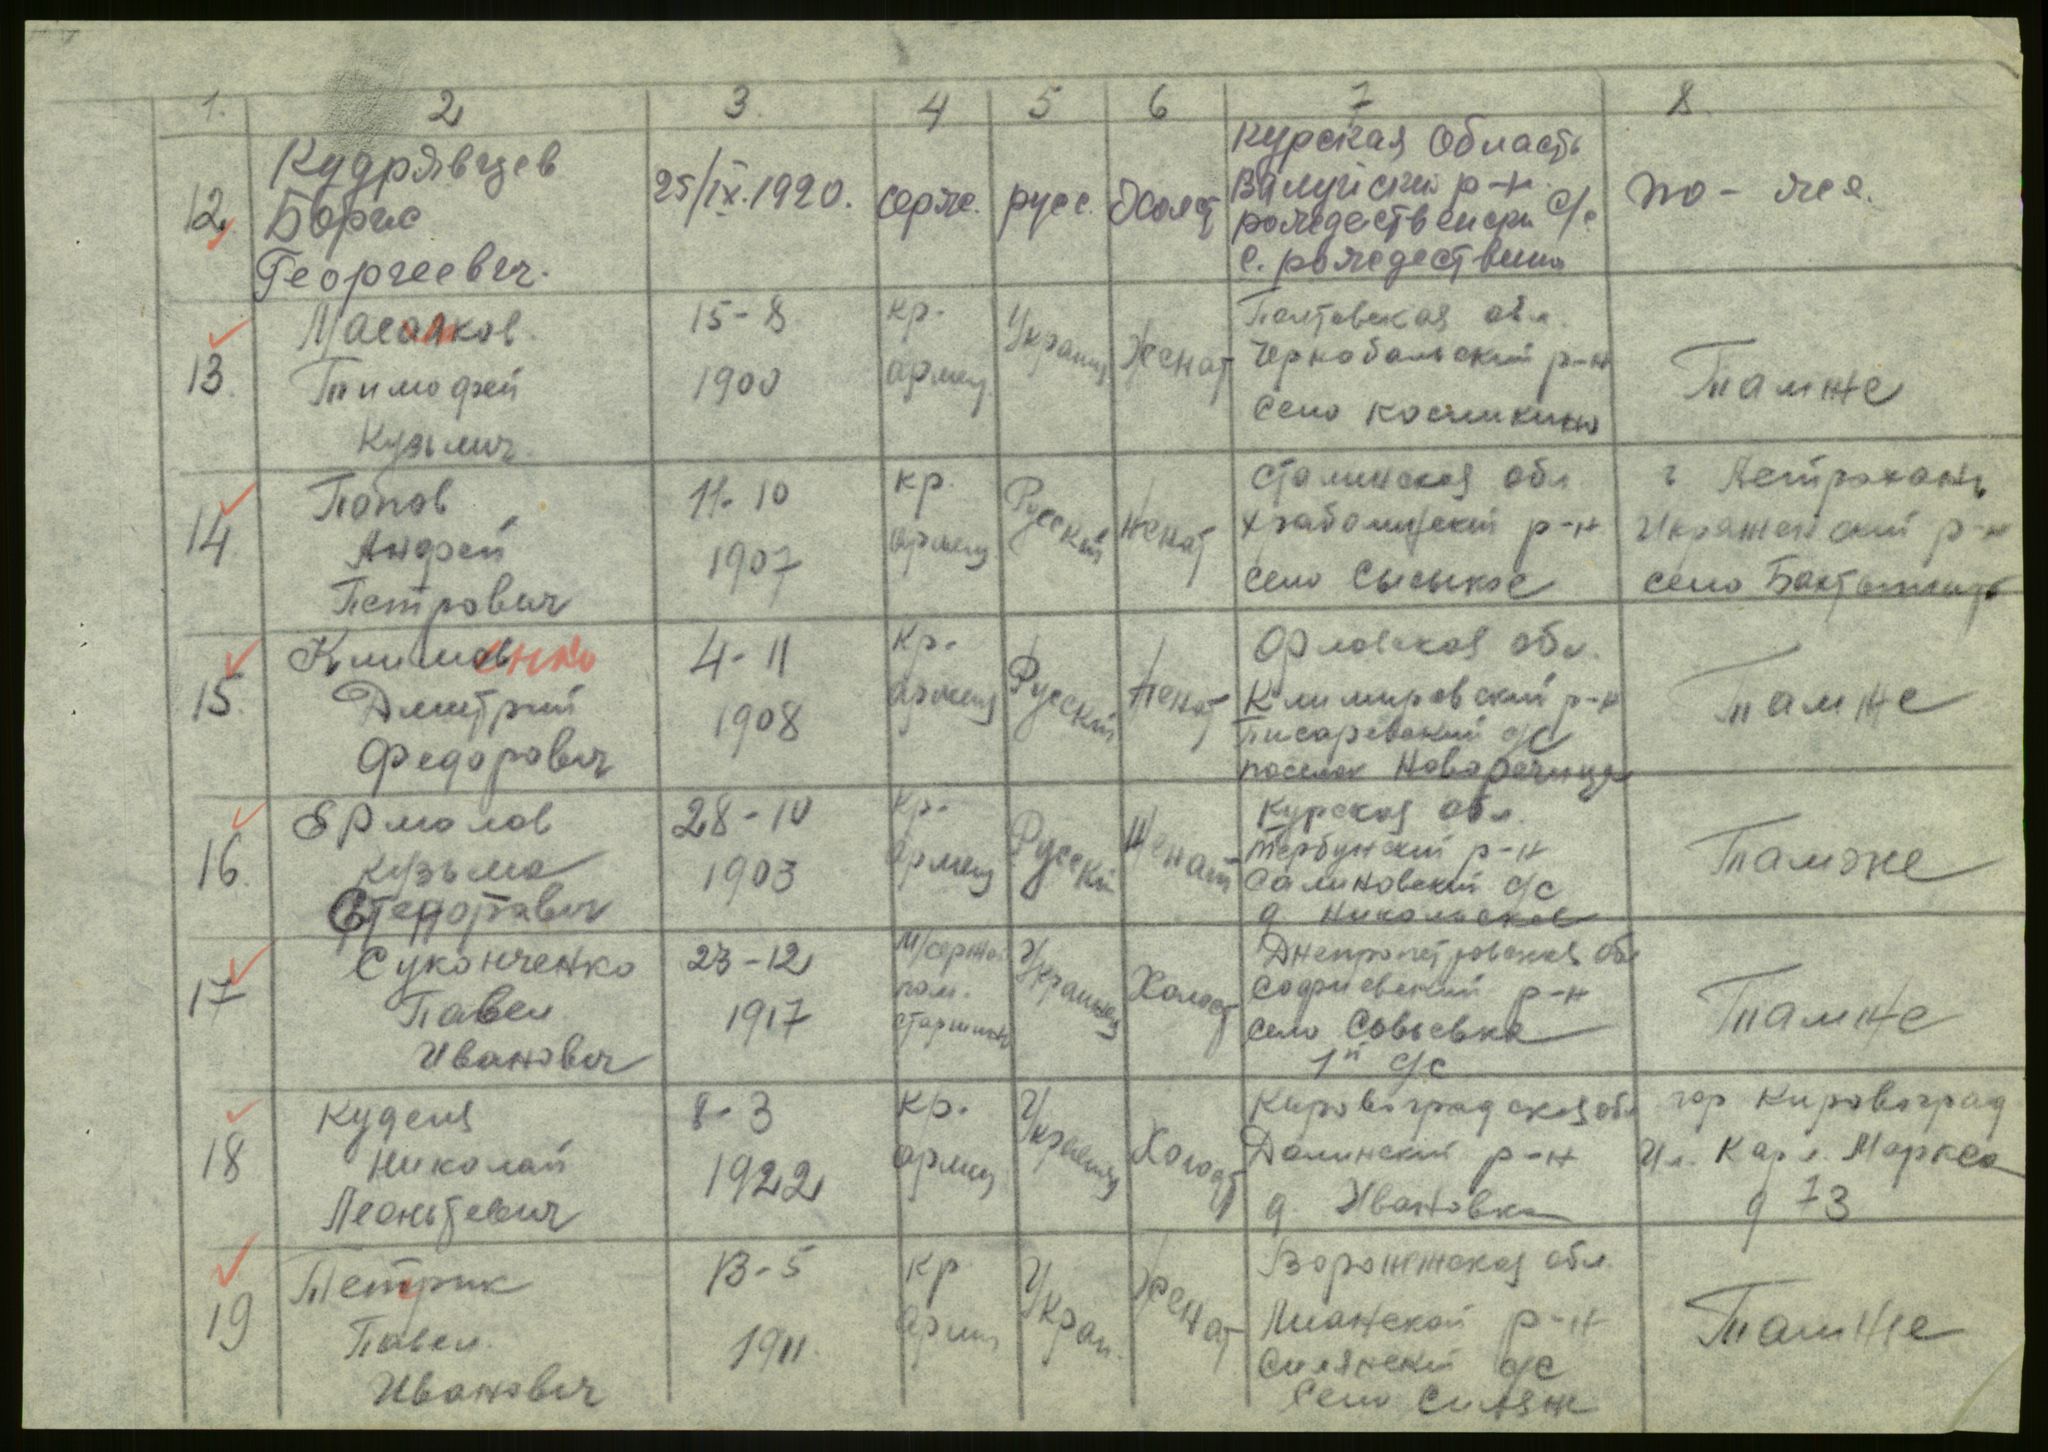 1. 2 3. 4 5 6 7 8.
12. Кудрявцев Борис Георгиевич. 25/IX.1920. серж. русс. Холост
Курская Область
Валуйский р-н.
рождественский с/с
с. рождествено
то-же.
13. Масалков Тимофей Кузьмич. 15-8 1900 кр. армеец Украинец Женат
Полтовская обл.
Чернобальский р-н
село
Тамже
14. Попов Андрей Петрович 11-10 1907 кр. армеец Русский Женат
Сталинская обл
р-н
село
г Астрохань
р-н
село
15. Климов енко Дмитрий Федорович 4-11 1908 кр. армеец Русский Женат
Орловская обл.
Климировский р-н
Писаревский с/с
поселок
Тамже
16. Ермолов Кузьма 28-10 1903 кр. армеец Русский Женат
Курская обл.
Тербунский р-н
Салиновский с/с
д Никольское
Тамже
17 Суконченко Павел Иванович 23-12 1917 м/сержан пом. старшины Украинец Холост
Днепропетровская обл
Софиевский р-н
село Совьевка
1й с/с
Тамже
18 Куделя Николай Леонтевич 8-3 1922 кр. армеец Украинец Холост
Кировоградская обл
Долинский р-н
д Ивановка
гор Кировоград
Ул. Карл. Маркса
д 73
19 Петрик Павел. Иванович 13-5 1911. кр армеец Украи. Женат
Воронжская обл.
р-н
с/с
село
Тамже